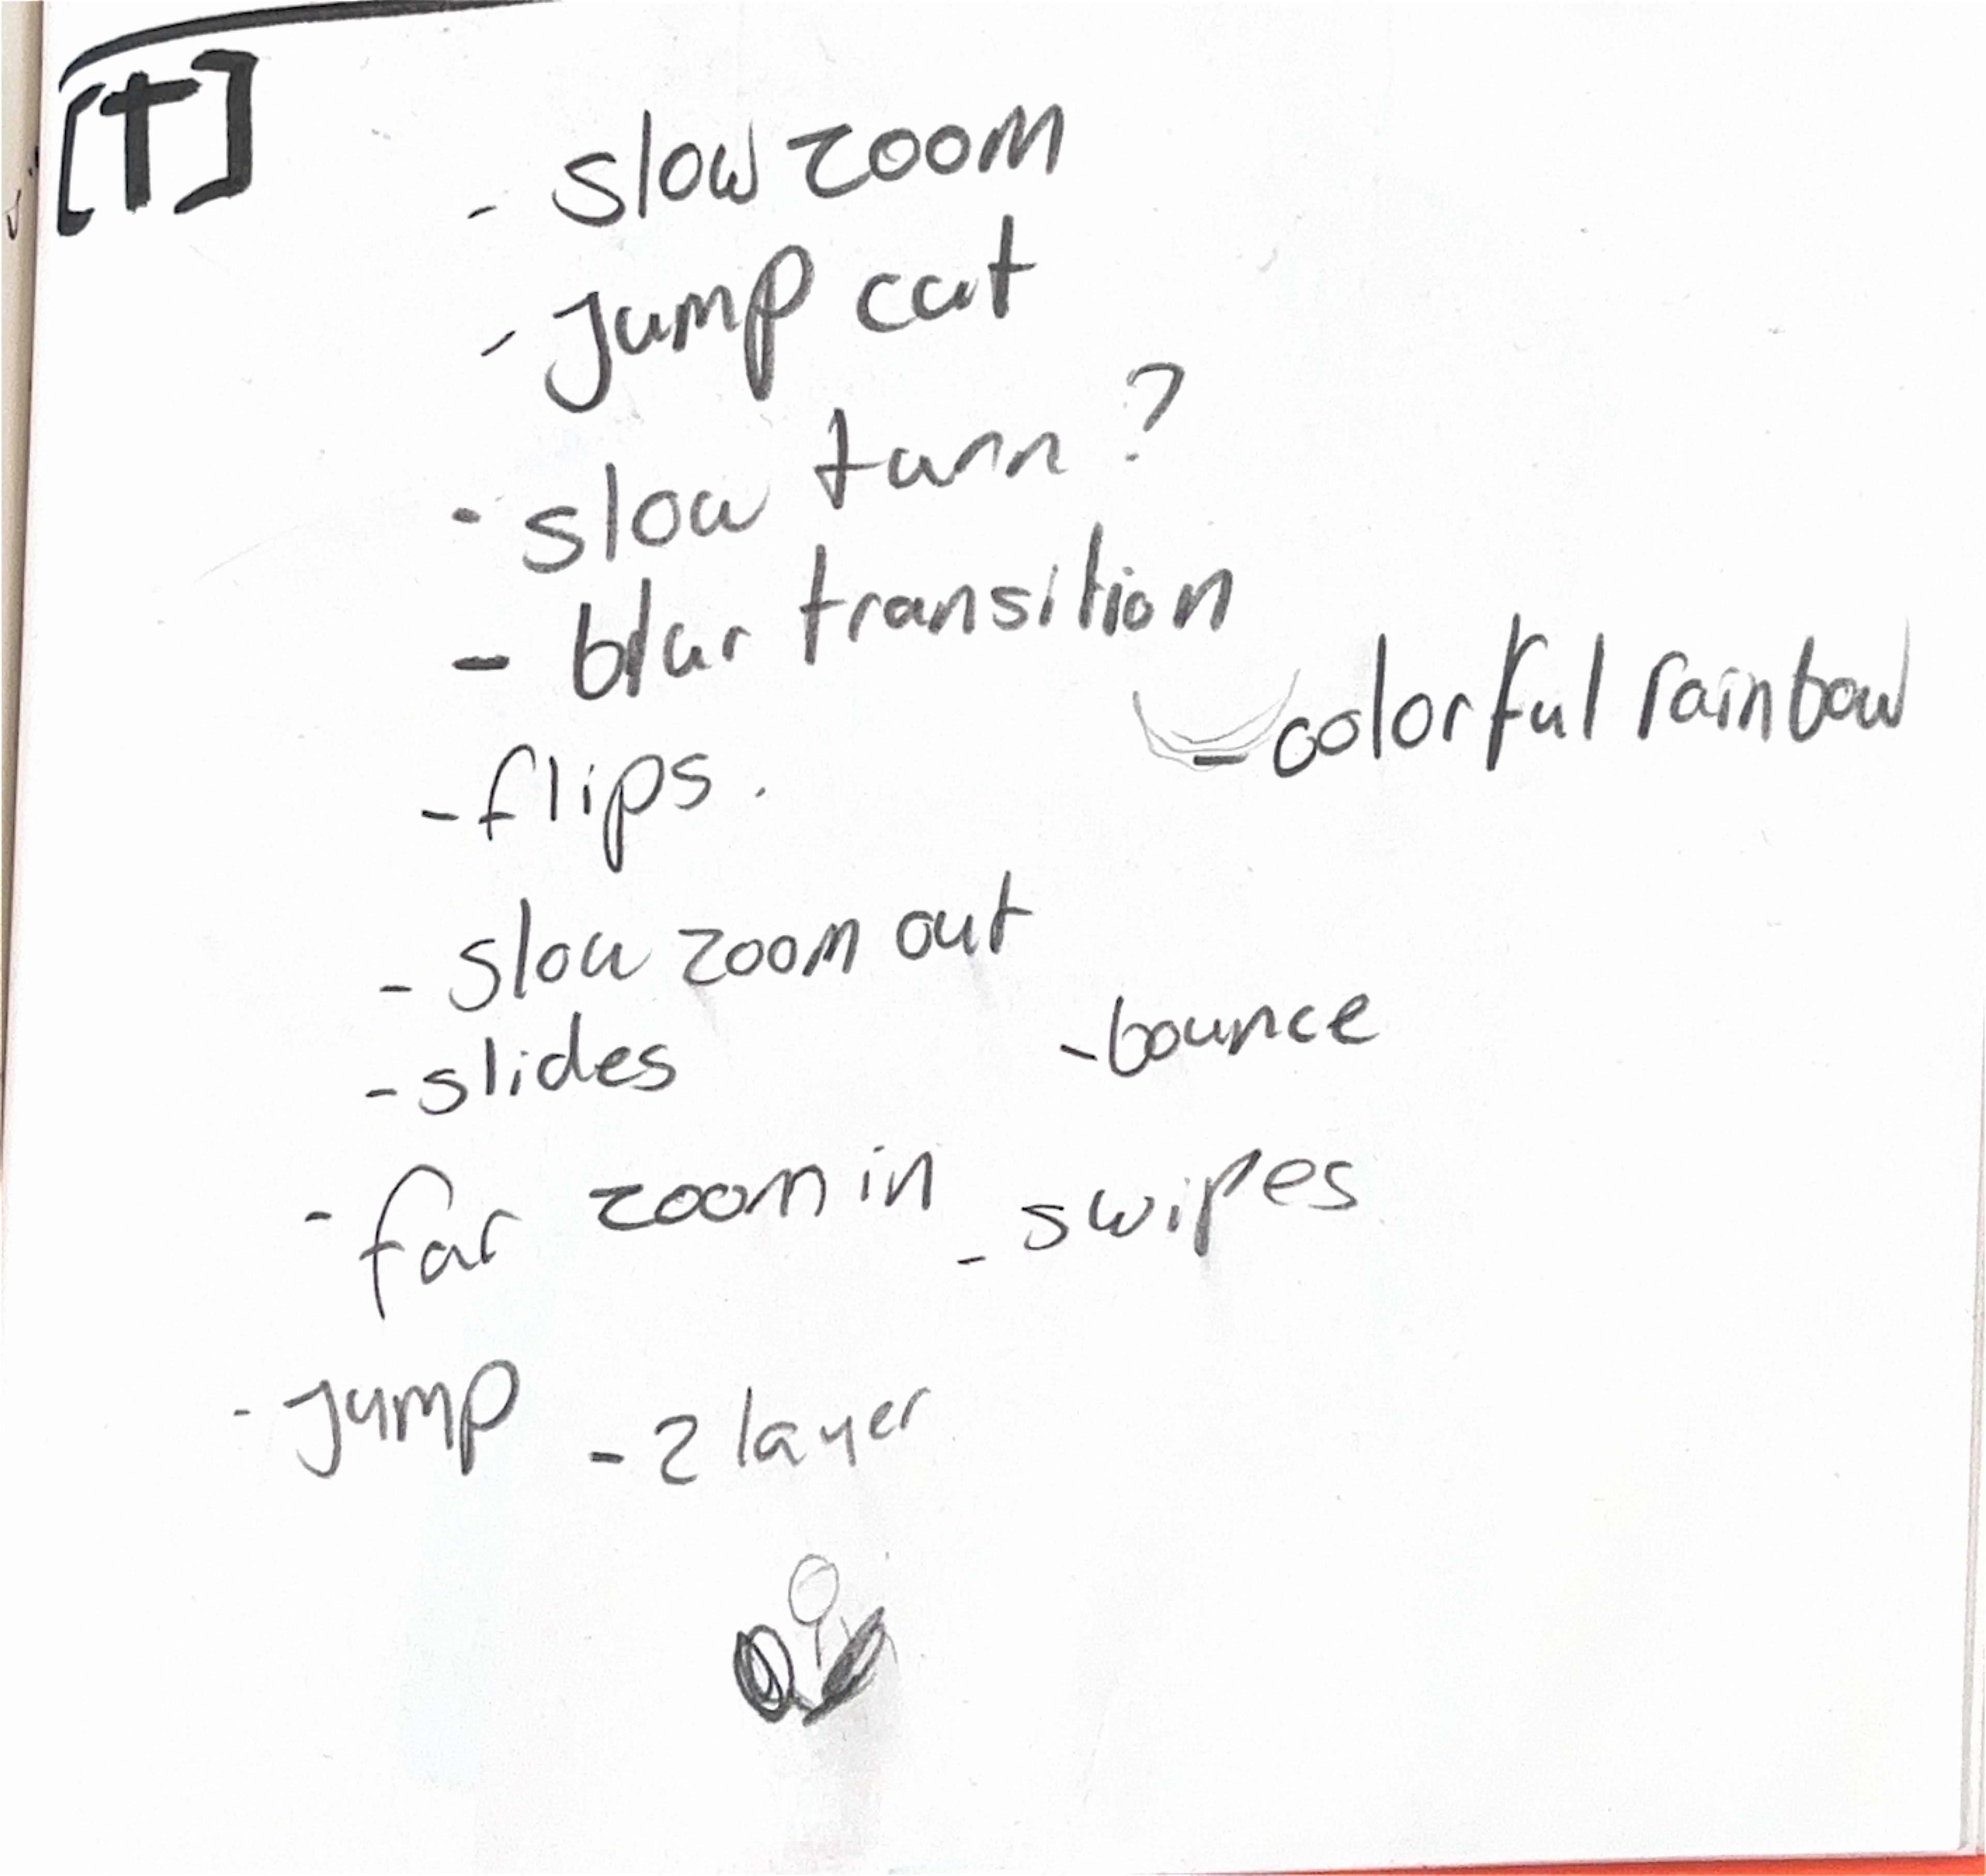 [T]
- slow zoom
- Jump cut
- slow turn ?
- blur transition
- colorful rainbow
- flips.
- slow zoom out
- slides
- bounce
- far zoom in
- swipes
- Jump
- 2 layer